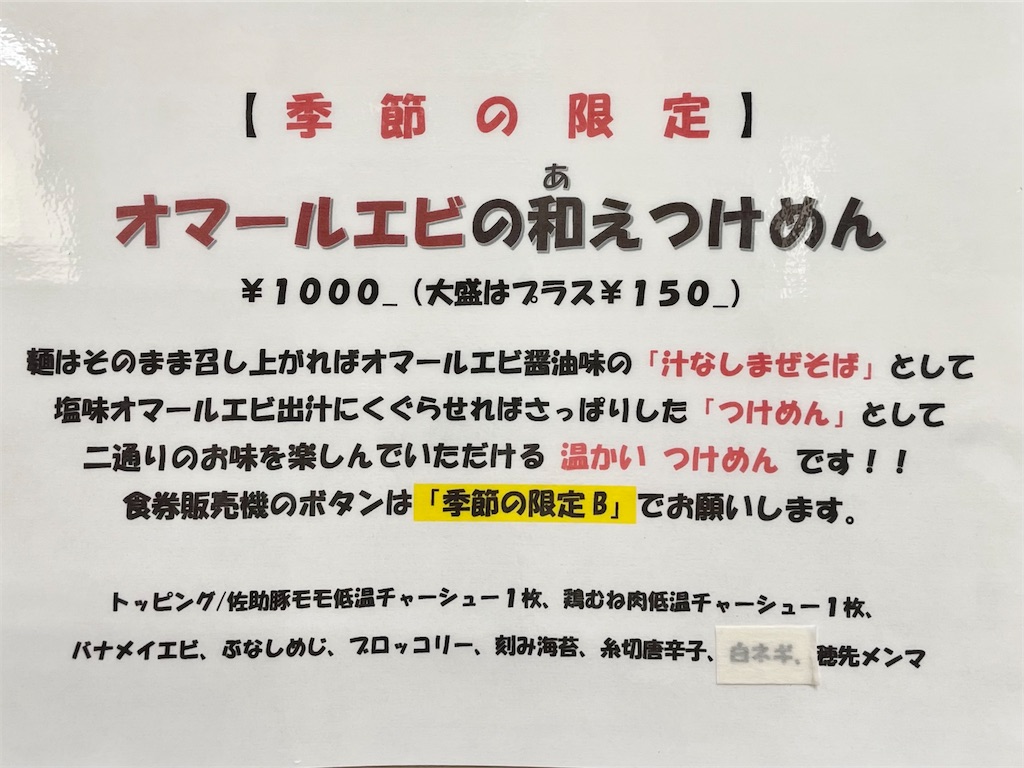 【季節の限定】
あ
オマールエビの和えつけめん
￥1000_（大盛はプラス￥150_）
麺はそのまま召し上がればオマールエビ醤油味の「汁なしまぜそば」として
塩味オマールエビ出汁にくぐらせればさっぱりした「つけめん」として
二通りのお味を楽しんでいただける 温かい つけめん です！！
食券販売機のボタンは「季節の限定B」でお願いします。
トッピング/佐助豚モモ低温チャーシュー1枚、鶏むね肉低温チャーシュー1枚、
バナメイエビ、ぶなしめじ、ブロッコリー、刻み海苔、糸切唐辛子、白ネギ、穂先メンマ